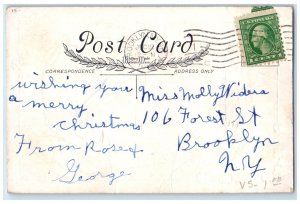 Post Card
CORRESPONDENCE
ADDRESS ONLY
wishing you
a merry
christmas
From Rose &
George
Miss Molly Widera
106 Forest St
Brooklyn
NY
VS- 1 00